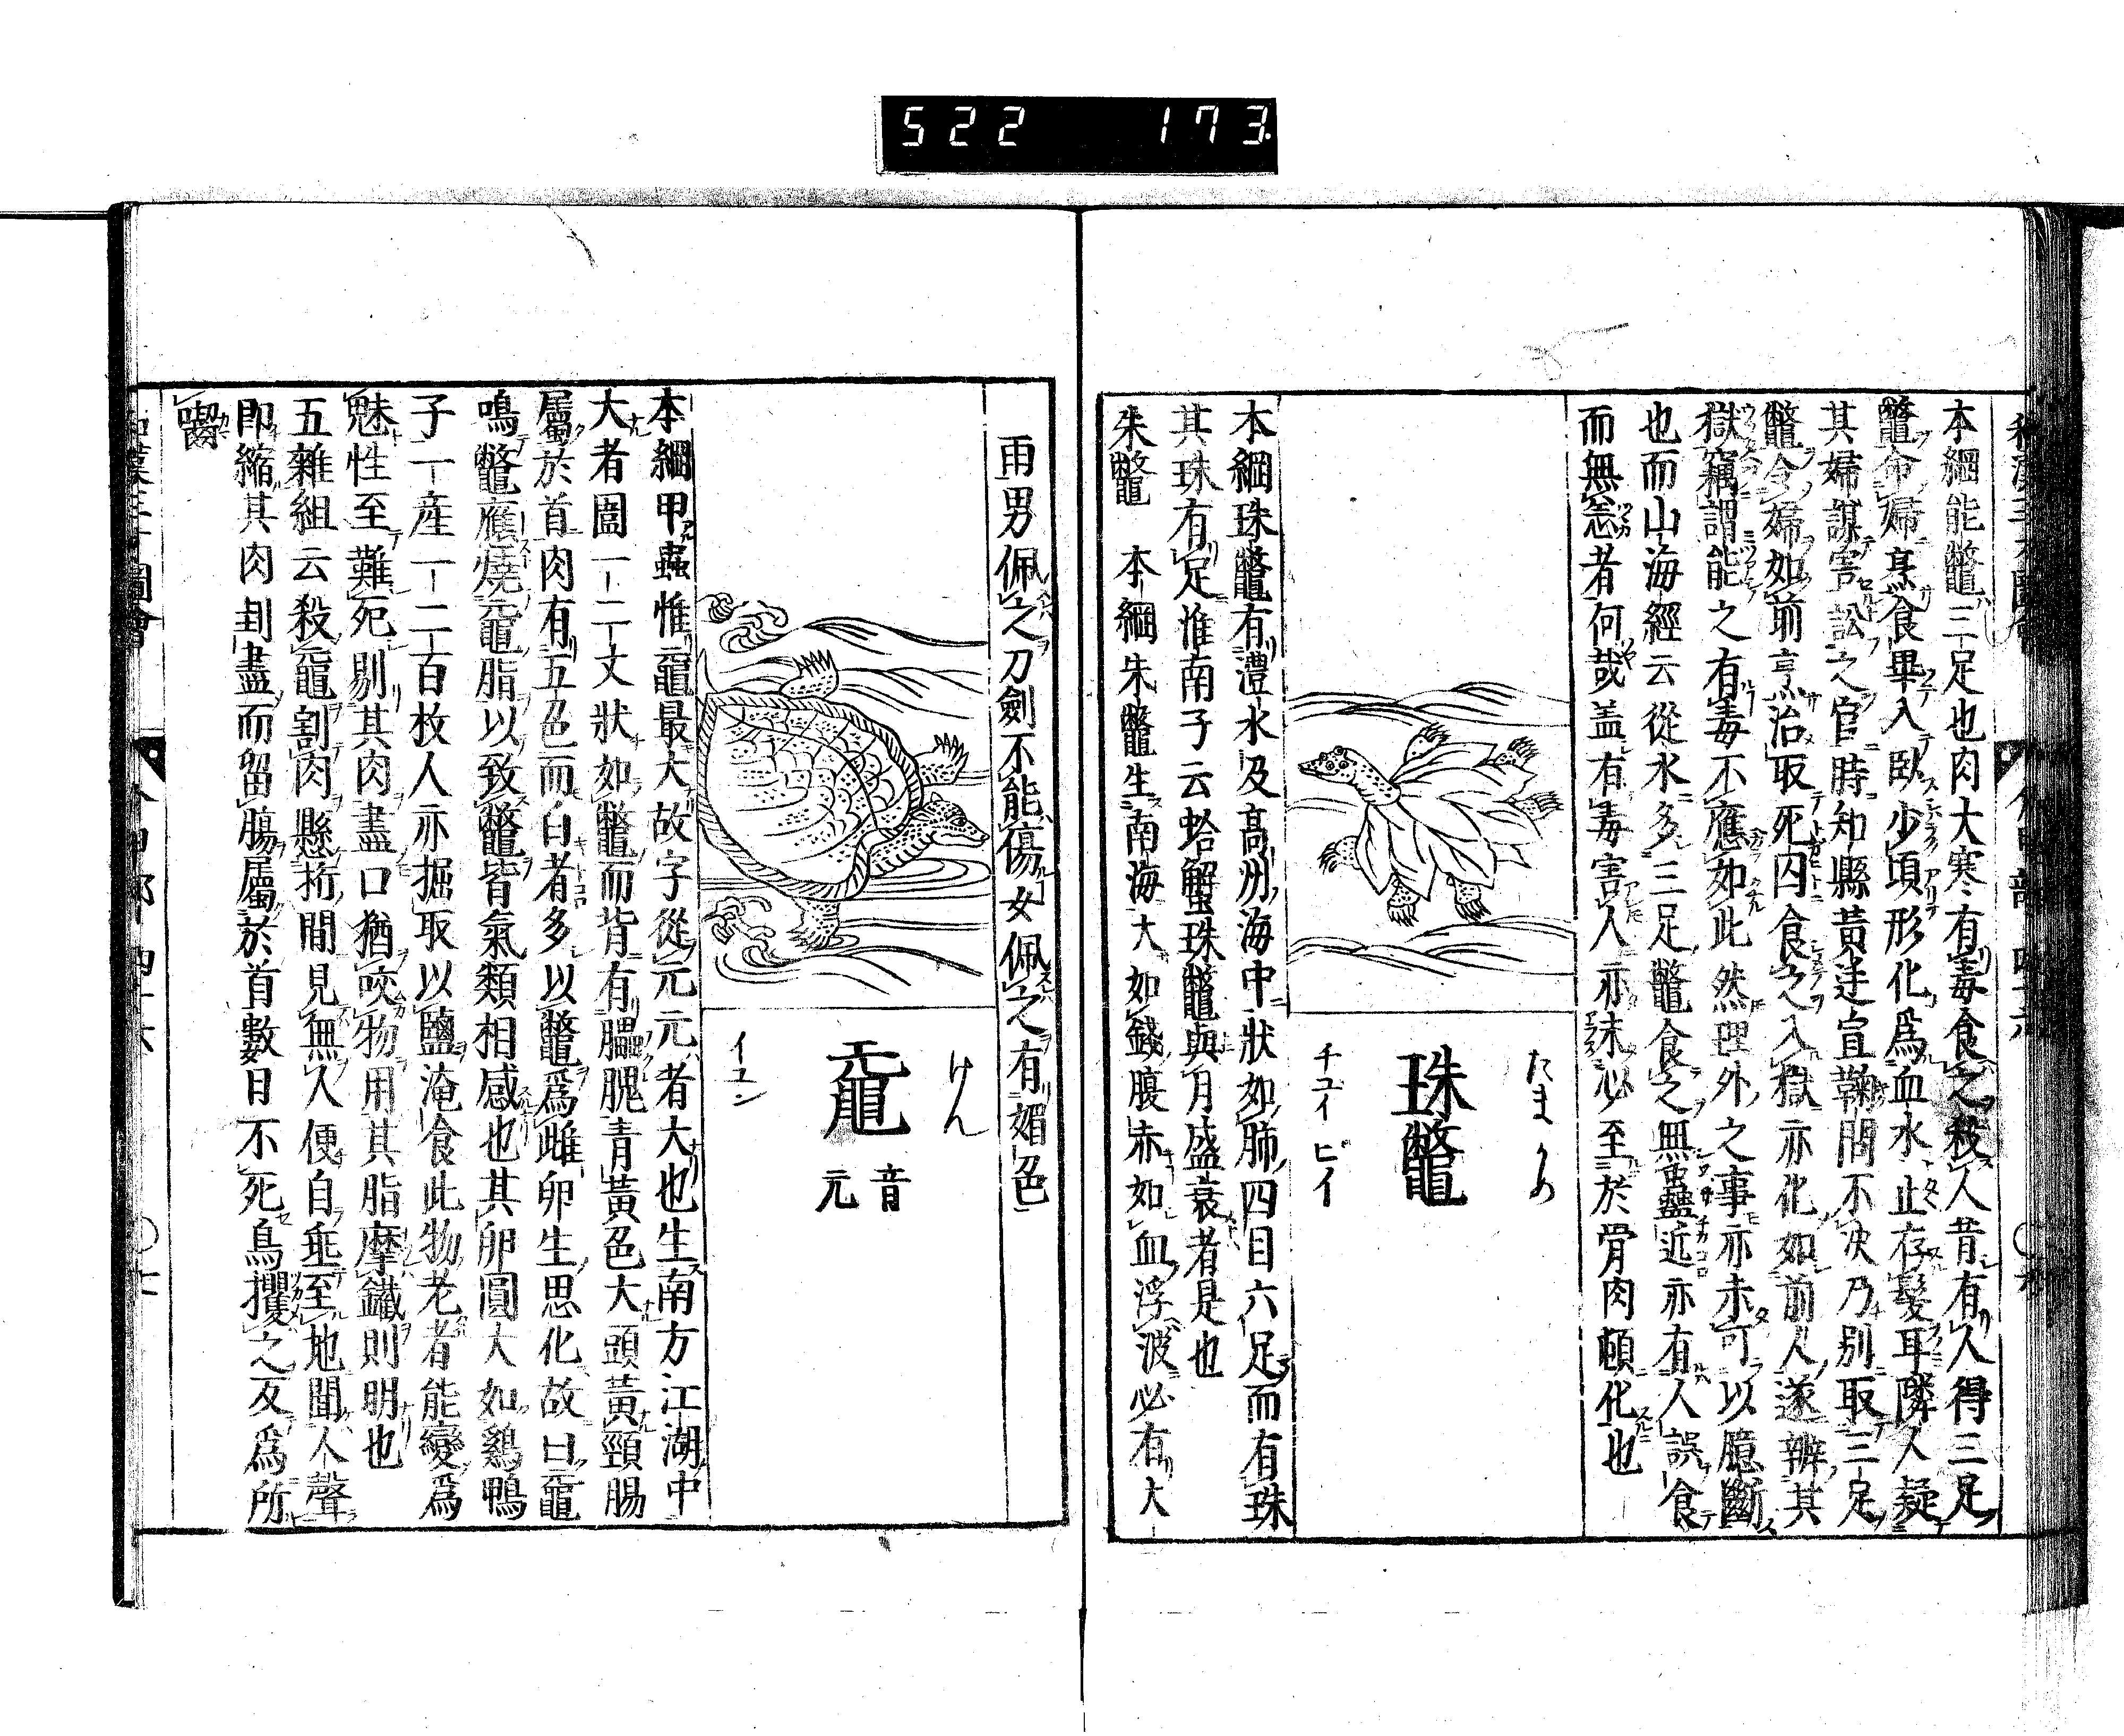 522 173
本綱能鼈三足也肉大寒有毒食之殺人昔有人得三足
鼈命婦烹食畢入臥少頃形化爲血水止存髮耳隣人疑
其婦謀害訟之官時知縣黃廷宣鞠問不决乃別取三足
鼈令婦如前烹治取死囚食之入獄亦化如前人遂辨其
獄竊謂能之有毒不應如此然理外之事亦未可以臆斷
也而山海經云從水多三足鼈食之無蠱近亦有人誤食
而無恙者何哉蓋有毒害人亦未必至於骨肉頓化也
たまがめ
珠鼈
チユイ ピイ
本綱珠鼈有澧水及高州海中狀如肺四目六足而有珠
其珠有足淮南子云蛤蟹珠鼈與月盛衰者是也
朱鼈 本綱朱鼈生南海大如錢腹赤如血浮波必有大
雨男佩之刀劍不能傷女佩之有媚色
げん
黿 音元
イユン
本綱甲蟲惟黿最大故字從元元者大也生南方江湖中
大者圍一二丈狀如鼈而背有腽膍青黃色大頭黃頸腸
屬於首肉有五色而白者多以鼈爲雌卵生思化故曰黿
鳴鼈應燒黿脂以致鼈皆氣類相感也其卵圓大如鷄鴨
子一産一二百枚人亦掘取以鹽淹食此物老者能變爲
魅性至難死剔其肉盡口猶咬物用其脂摩鐵則明也
五雜組云殺黿割肉懸桁間見無人便自垂至地聞人聲
即縮其肉刲盡而留腸屬於首數日不死鳥攫之反爲所
囓